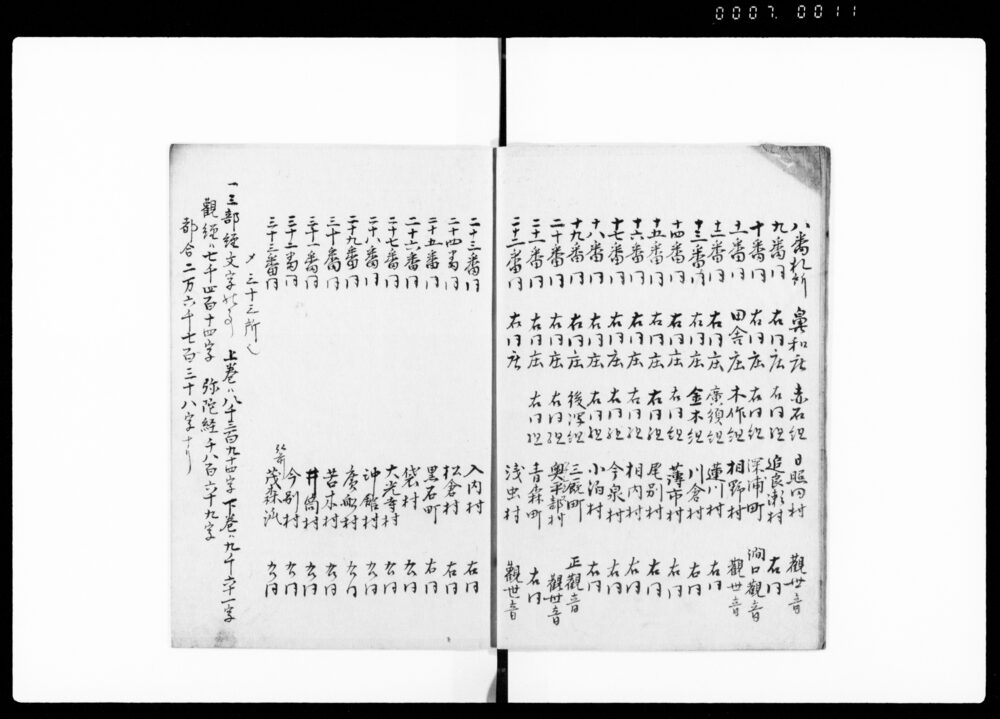 0007.0011
八番札所 鼻和庄 赤石組 日照田村 觀世音
九番同 右同庄 右同組 追良瀬村 右同
十番同 右同庄 右同組 深浦町 澗口觀音
十一番同 田舎庄 木作組 相野村 觀世音
十二番同 右同庄 廣須組 蓮川村 右同
十三番同 右同庄 金木組 川倉村 右同
十四番同 右同庄 右同組 薄市村 右同
十五番同 右同庄 右同組 尾別村 右同
十六番同 右同庄 右同組 相内村 右同
十七番同 右同庄 右同組 今泉村 右同
十八番同 右同庄 右同組 小泊村 右同
十九番同 右同庄 後潟組 三厩町 正觀音
二十番同 右同庄 右同組 奥平部村 觀世音
二十一番同 右同庄 右同組 青森町 右同
二十二番同 右同庄 浅虫村 觀世音
二十三番同 入内村 右同
二十四番同 松倉村 右同
二十五番同 黒石町 右同
二十六番同 袋村 右同
二十七番同 大光寺村 右同
二十八番同 沖舘村 右同
二十九番同 廣舩村 右同
三十番同 苦木村 右同
三十一番同 井筒村 右同
三十二番同 今別村 右同
三十三番同 弘前 茂森派 右同
〆三十三所也
一三部經文字 上巻ハ八千三百九十四字 下巻ハ九千六十一字
觀經ハ七千四百十四字 弥陀経千八百六十九字
都合二万六千七百三十八字ナリ